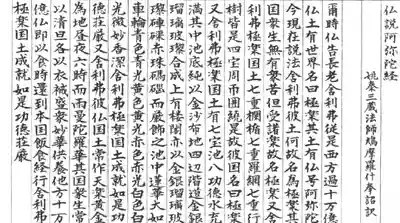 仏説阿弥陀経
姚秦三蔵法師鳩摩羅什奉詔訳
爾時仏告長老舎利弗従是西方過十万億
仏土有世界名曰極楽其土有仏号阿弥陀
今現在説法舎利弗彼土何故名為極楽其
国衆生無有衆苦但受諸楽故名極楽又
舎利弗極楽国土七重欄楯七重羅網七重行
樹皆是四宝周帀囲繞是故彼国名曰極楽
又舎利弗極楽国土有七宝池八功徳水充
満其中池底純以金沙布地四辺階道金銀
瑠璃玻瓈合成上有楼閣亦以金銀瑠璃玻
瓈硨磲赤珠碼碯而厳飾之池中蓮華大如
車輪青色青光黄色黄光赤色赤光白色白
光微妙香潔舎利弗極楽国土成就如是功
徳荘厳又舎利弗彼仏国土常作天楽黄金
為地昼夜六時而雨曼陀羅華其国衆生常
以清旦各以衣裓盛衆妙華供養他方十万
億仏即以食時還到本国飯食経行舎利弗
極楽国土成就如是功徳荘厳